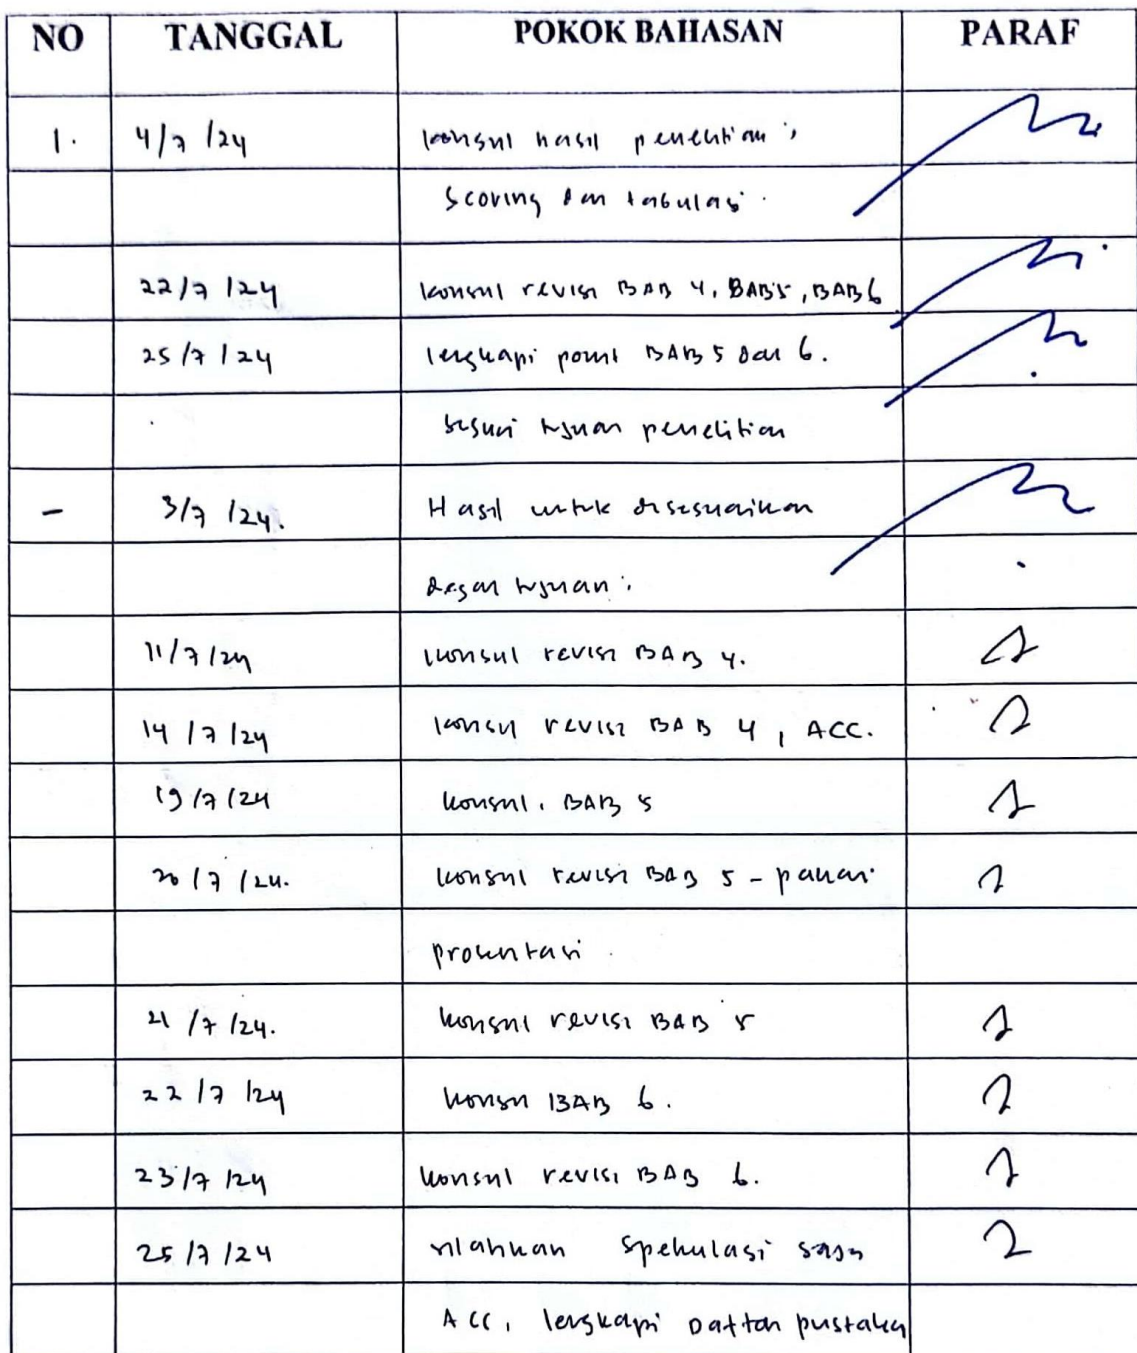 NO TANGGAL POKOK BAHASAN PARAF
1. 4/7/24 konsul hasil penelitian ;
Scoring dan tabulasi.
22/7/24 konsul revisi BAB 4, BAB 5, BAB 6
25/7/24 lengkapi point BAB 5 dan 6.
sesuai tujuan penelitian
- 3/7/24. Hasil untuk disesuaikan
dengan tujuan ;
11/7/24 konsul revisi BAB 4.
14/7/24 konsul revisi BAB 4, ACC.
19/7/24 konsul. BAB 5
20/7/24. konsul revisi BAB 5 -
21/7/24. konsul revisi BAB 5
22/7/24 konsul BAB 6.
23/7/24 konsul revisi BAB 6.
25/7/24 silahkan
ACC, lengkapi Daftar pustaka